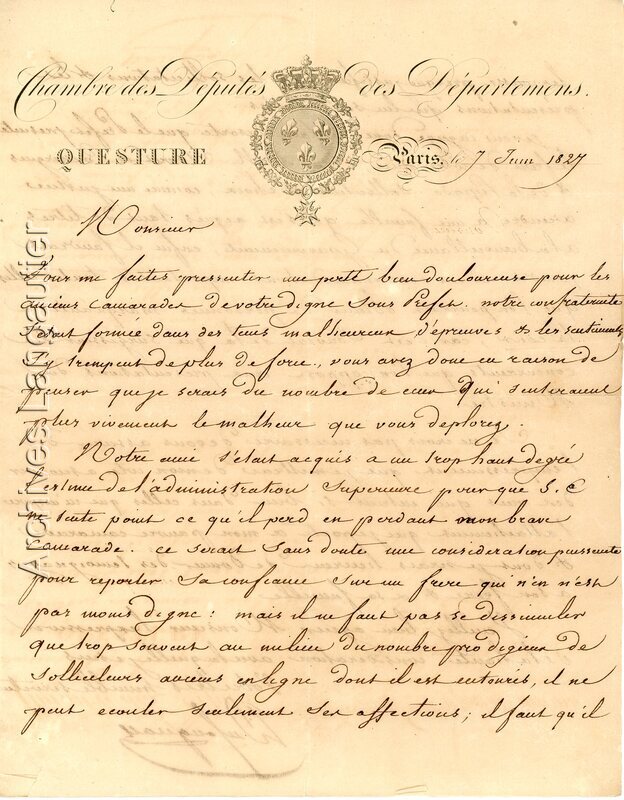 Chambre des Députés des Départemens.
QUESTURE Paris, le 7 Juin 1827
Monsieur
Vous me faites pressentir une perte bien douloureuse pour les
anciens camarades de votre digne Sous Prefet. notre confraternité
s'etait formée dans des tems malheureux d'épreuves & les sentiments
s'y trempent de plus de force, vous avez donc eu raison de
penser que je serais du nombre de ceux qui sentiraient
plus vivement le malheur que vous deplorez.
Notre ami s'était acquis a un trop haut degré
l'estime de l'administration Superieure pour que S. E
ne sente point ce qu'il perd en perdant mon brave
Camarade. ce serait sans doute une consideration puissante
pour reporter sa confiance sur un frere qui n'en n'est
pas moins digne: mais il ne faut pas se dissimuler
que trop souvent au milieu du nombre prodigieux de
solliciteurs anciens en ligne dont il est entouré, il ne
peut ecouter seulement ses affections; il faut qu'il
Archives Lartautier